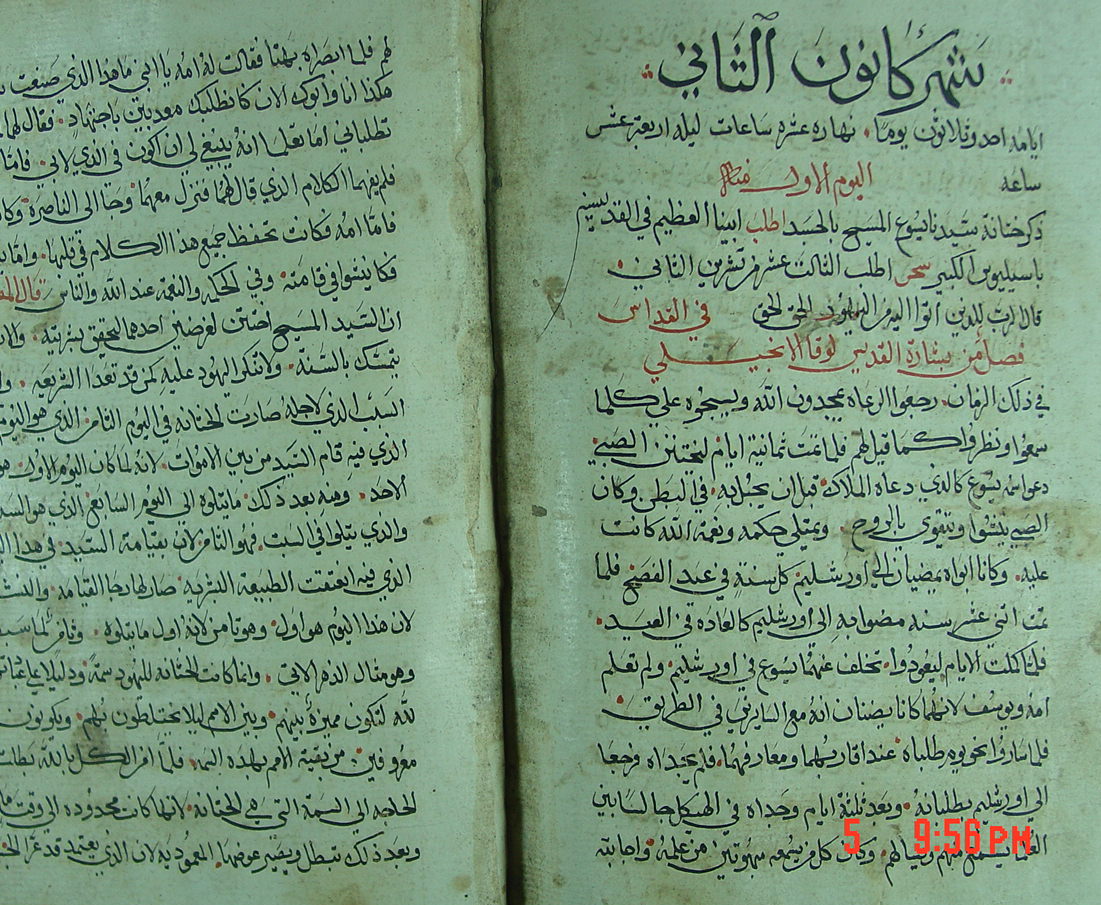 شهر كانون الثاني
ايامه احد وثلاثون يوما. نهاره عشرة ساعات ليله اربعة عشر
ساعه
اليوم الاول منه
ذكر ختانة سيدنا يسوع المسيح بالجسد اطلب ابينا العظيم في القديسين
باسيليوس الكبير سحر اطلب الثالث عشر من تشرين الثاني.
قال الرب للذين اتوا اليه اليهود في القداس
فصل من بشارة القديس لوقا الانجيلي
في ذلك الزمان. رجعوا الرعاه يمجدون الله ويسبحوه علي كلما
سمعوا ونظروا كما قيل لهم فلما تمت ثمانية ايام ليختتن الصبي
دعوا اسمه يسوع كالذي دعاه الملاك قبل ان يحبل به في البطن وكان
الصبي ينشوا ويتقوي بالروح. ويمتلي حكمه ونعمة الله كانت
عليه. وكانا ابواه يمضيان الي اورشليم كل سنة في عيد الفصح فلما
تمت اثني عشر سنه مضوا به الي اورشليم كالعاده في العيد.
فلما كملت الايام ليعودوا. تخلف عنهما يسوع في اورشليم. ولم تعلم
امه ويوسف لانهما كانا يضنان انه مع السايرين في الطريق.
فلما ساروا نحو يوم طلباه عند اقاربهما ومعارفهما. فلم يجداه فرجعا
الي اورشليم يطلبانه. وبعد ثلثة ايام وجداه في الهيكل جالسا بين
العلما يسمع منهم ويسالهم. وكان كل من يسمعه مبهوتين من علمه واجابته
5 9:56 PM
لهم فلما ابصراه بهتا فقالت له امه يا ابني ما هذا الذي صنعت
هكذا انا وابوك الان كنا نطلبك معذبين باجتهاد. فقال لهما
تطلباني اما تعلما انه ينبغي لي ان اكون في الذي لابي. فاما
فلم يفهما الكلام الذي قال لهما فنزل معهما وجا الي الناصرة
فاما امه فكانت تحفظ جميع هذا الكلام في قلبها. واما
فكان ينشوا في قامته. وفي الحكمه والنعمة عند الله والناس قال
ان السيد المسيح اختتن لغرضين احدهما لتحقق بشريته.
يتمسك بالسنة. ولا تنكر اليهود عليه كمن قد تعدا الشريعه.
السبب الذي لاجله صارت الختانه في اليوم الثامن الذي هو اليوم
الذي فيه قام السيد من بين الاموات. لانه لما كان اليوم الاول هو
الاحد. ومنه بعد ذلك ما يتلوه الي اليوم السابع الذي هو
والذي يتلوا في السبت. فهو الثامن لان بقيامة السيد في هذا
الذي فيه انعتقت الطبيعة البشرية صار لها رجا القيامه.
لان هذا اليوم هو اول. وهو ثامن لانه اول ما يتلوه. وثامن لما سبق
وهو مثال الدهر الاتي. وانما كانت الختانه لليهود سمة ودليلا علي
لله لتكون مميزة بينهم. وبين الامم ليلا يختلطون بهم. ويكونون
معروفين من بقية الامم بهذه السمه. فلما امن الكل بالله بطلت
الحاجه الي السمة التي هي الختانه. لانها كانت محدوده الي وقت ما
وبعد ذلك تبطل ويصير عوضها. المعموديه لان الذي يعتمد قد